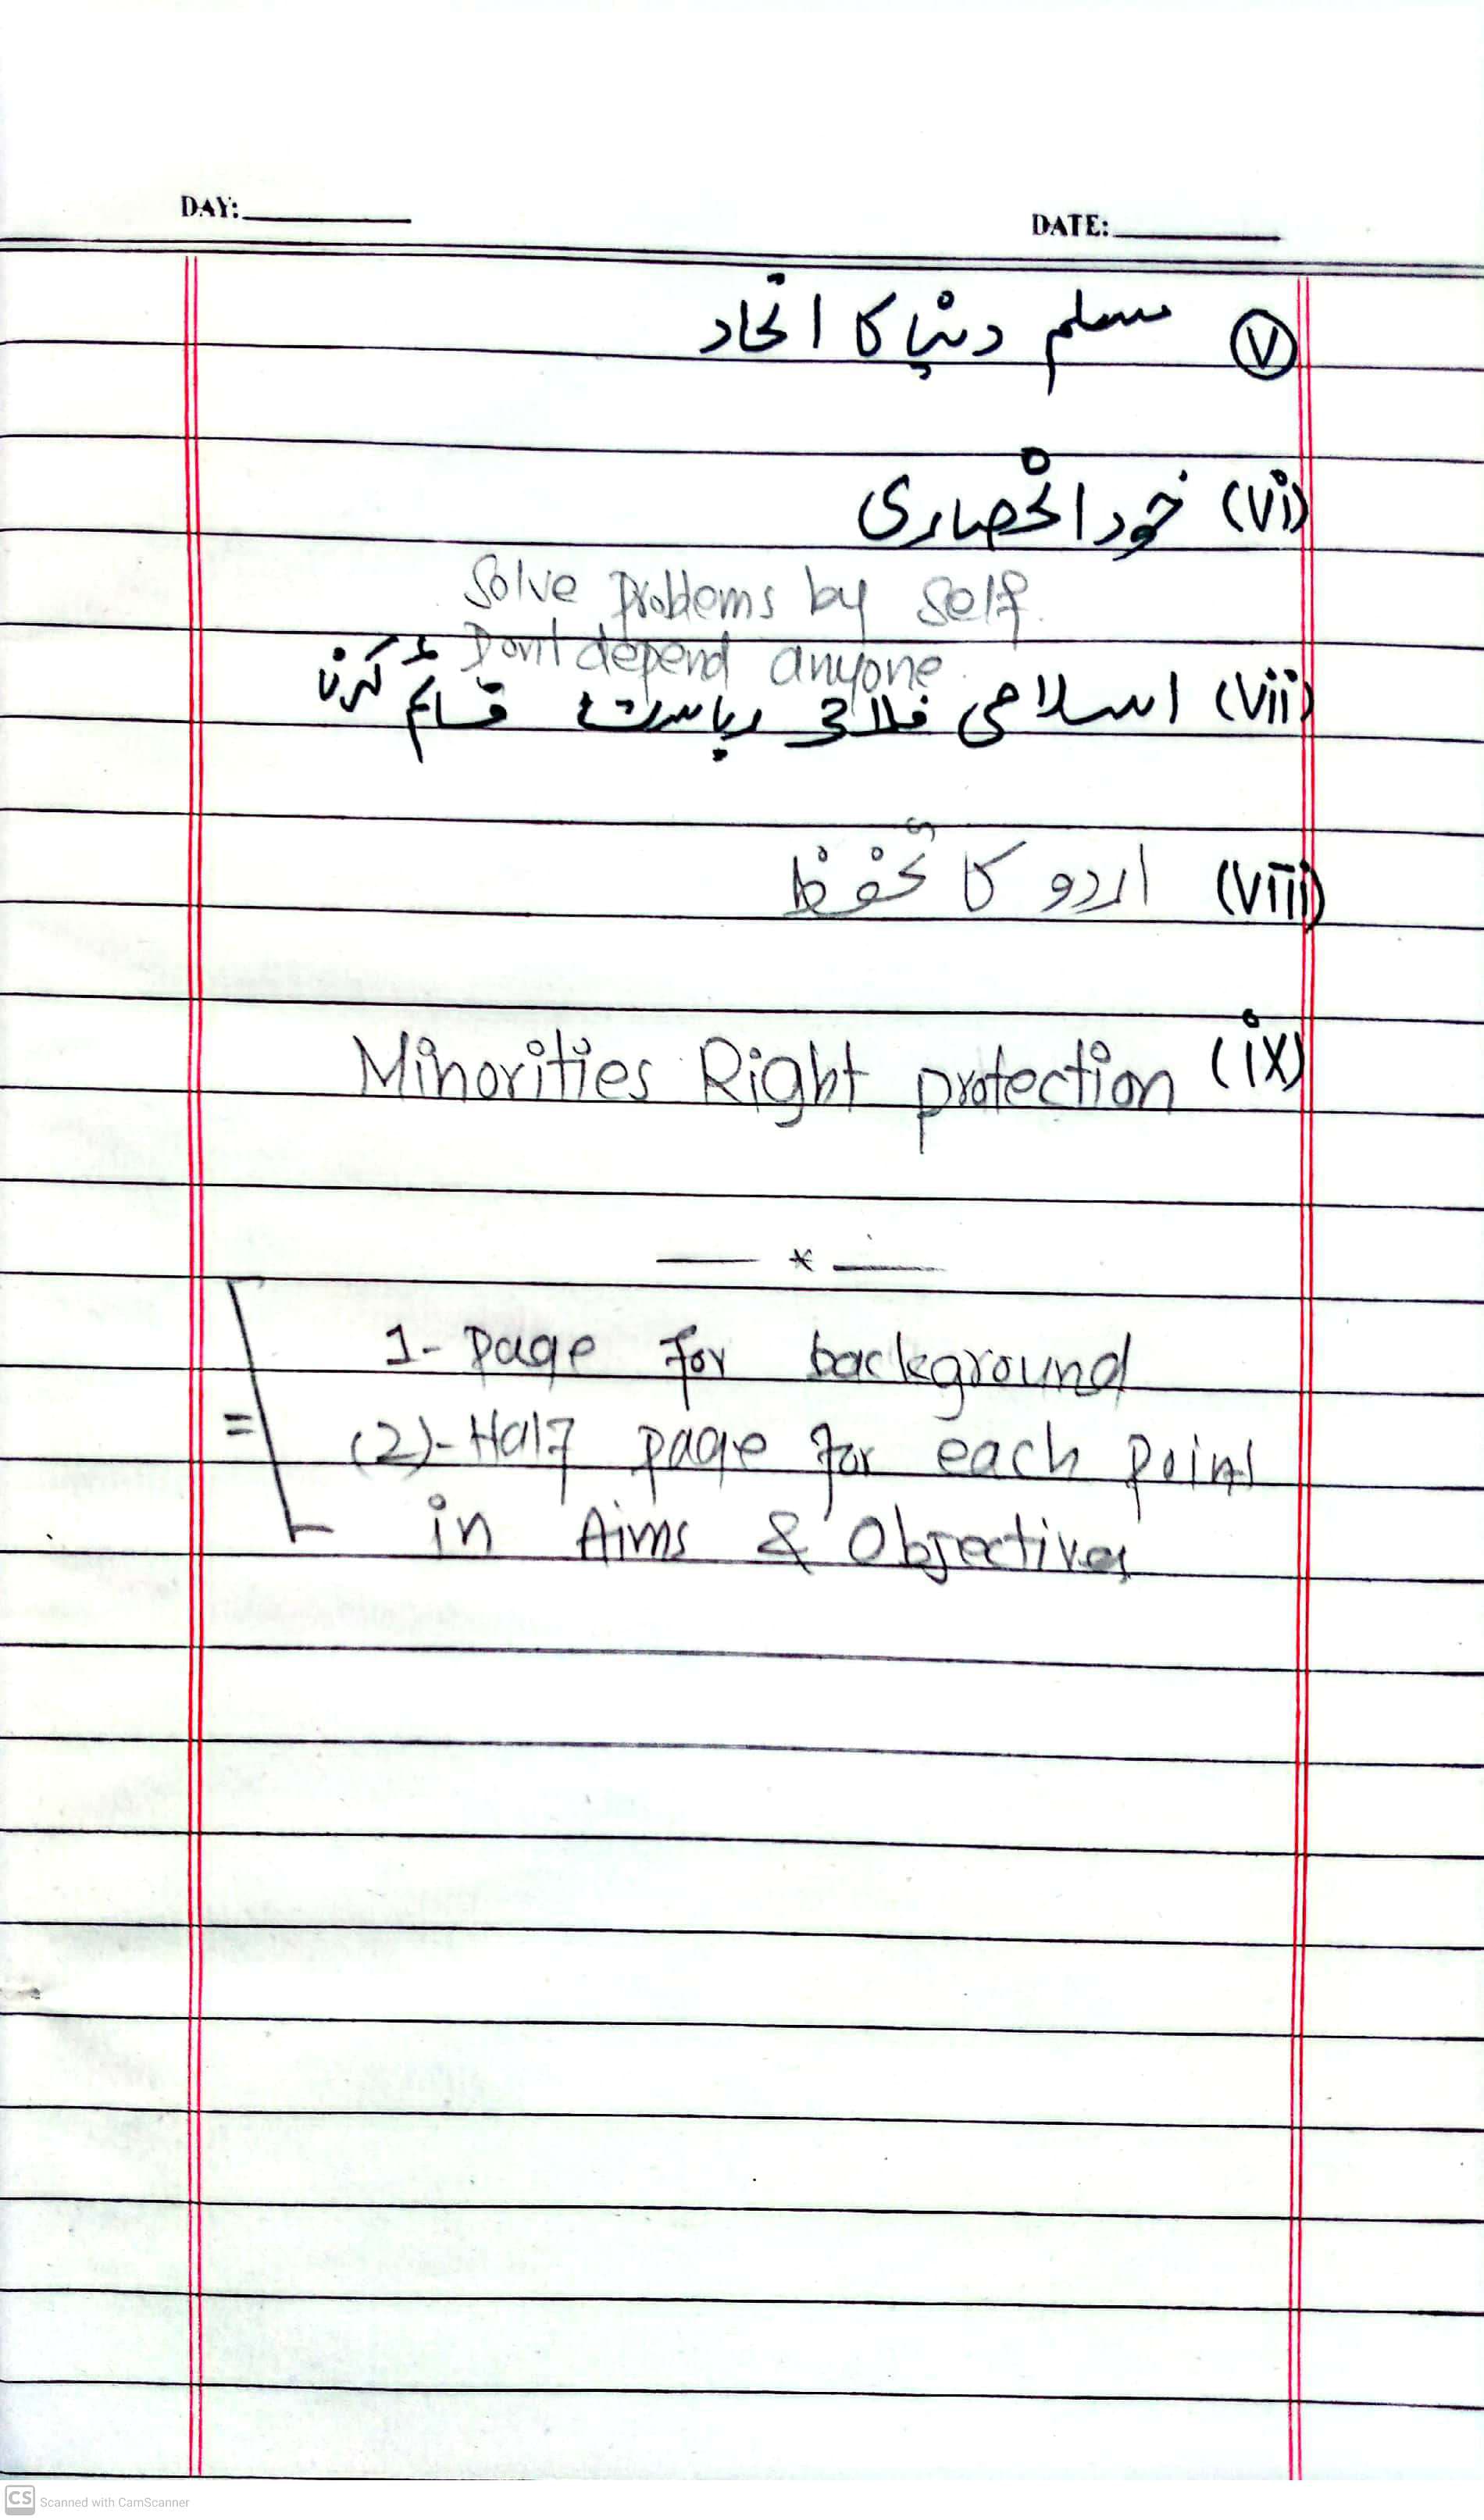 DAY: DATE:
Ⓥ مسلم دنیا کا اتحاد
(Vi) خود انحصاری
Solve problems by self.
Dont depend anyone.
(Vii) اسلامی فلاحی ریاست قائم کرنا
(Viii) اردو کا تحفظ
Minorities Right protection (iX)
— * —
1- page for background
= (2)- Half page for each point
in Aims & Objectives
CS Scanned with CamScanner